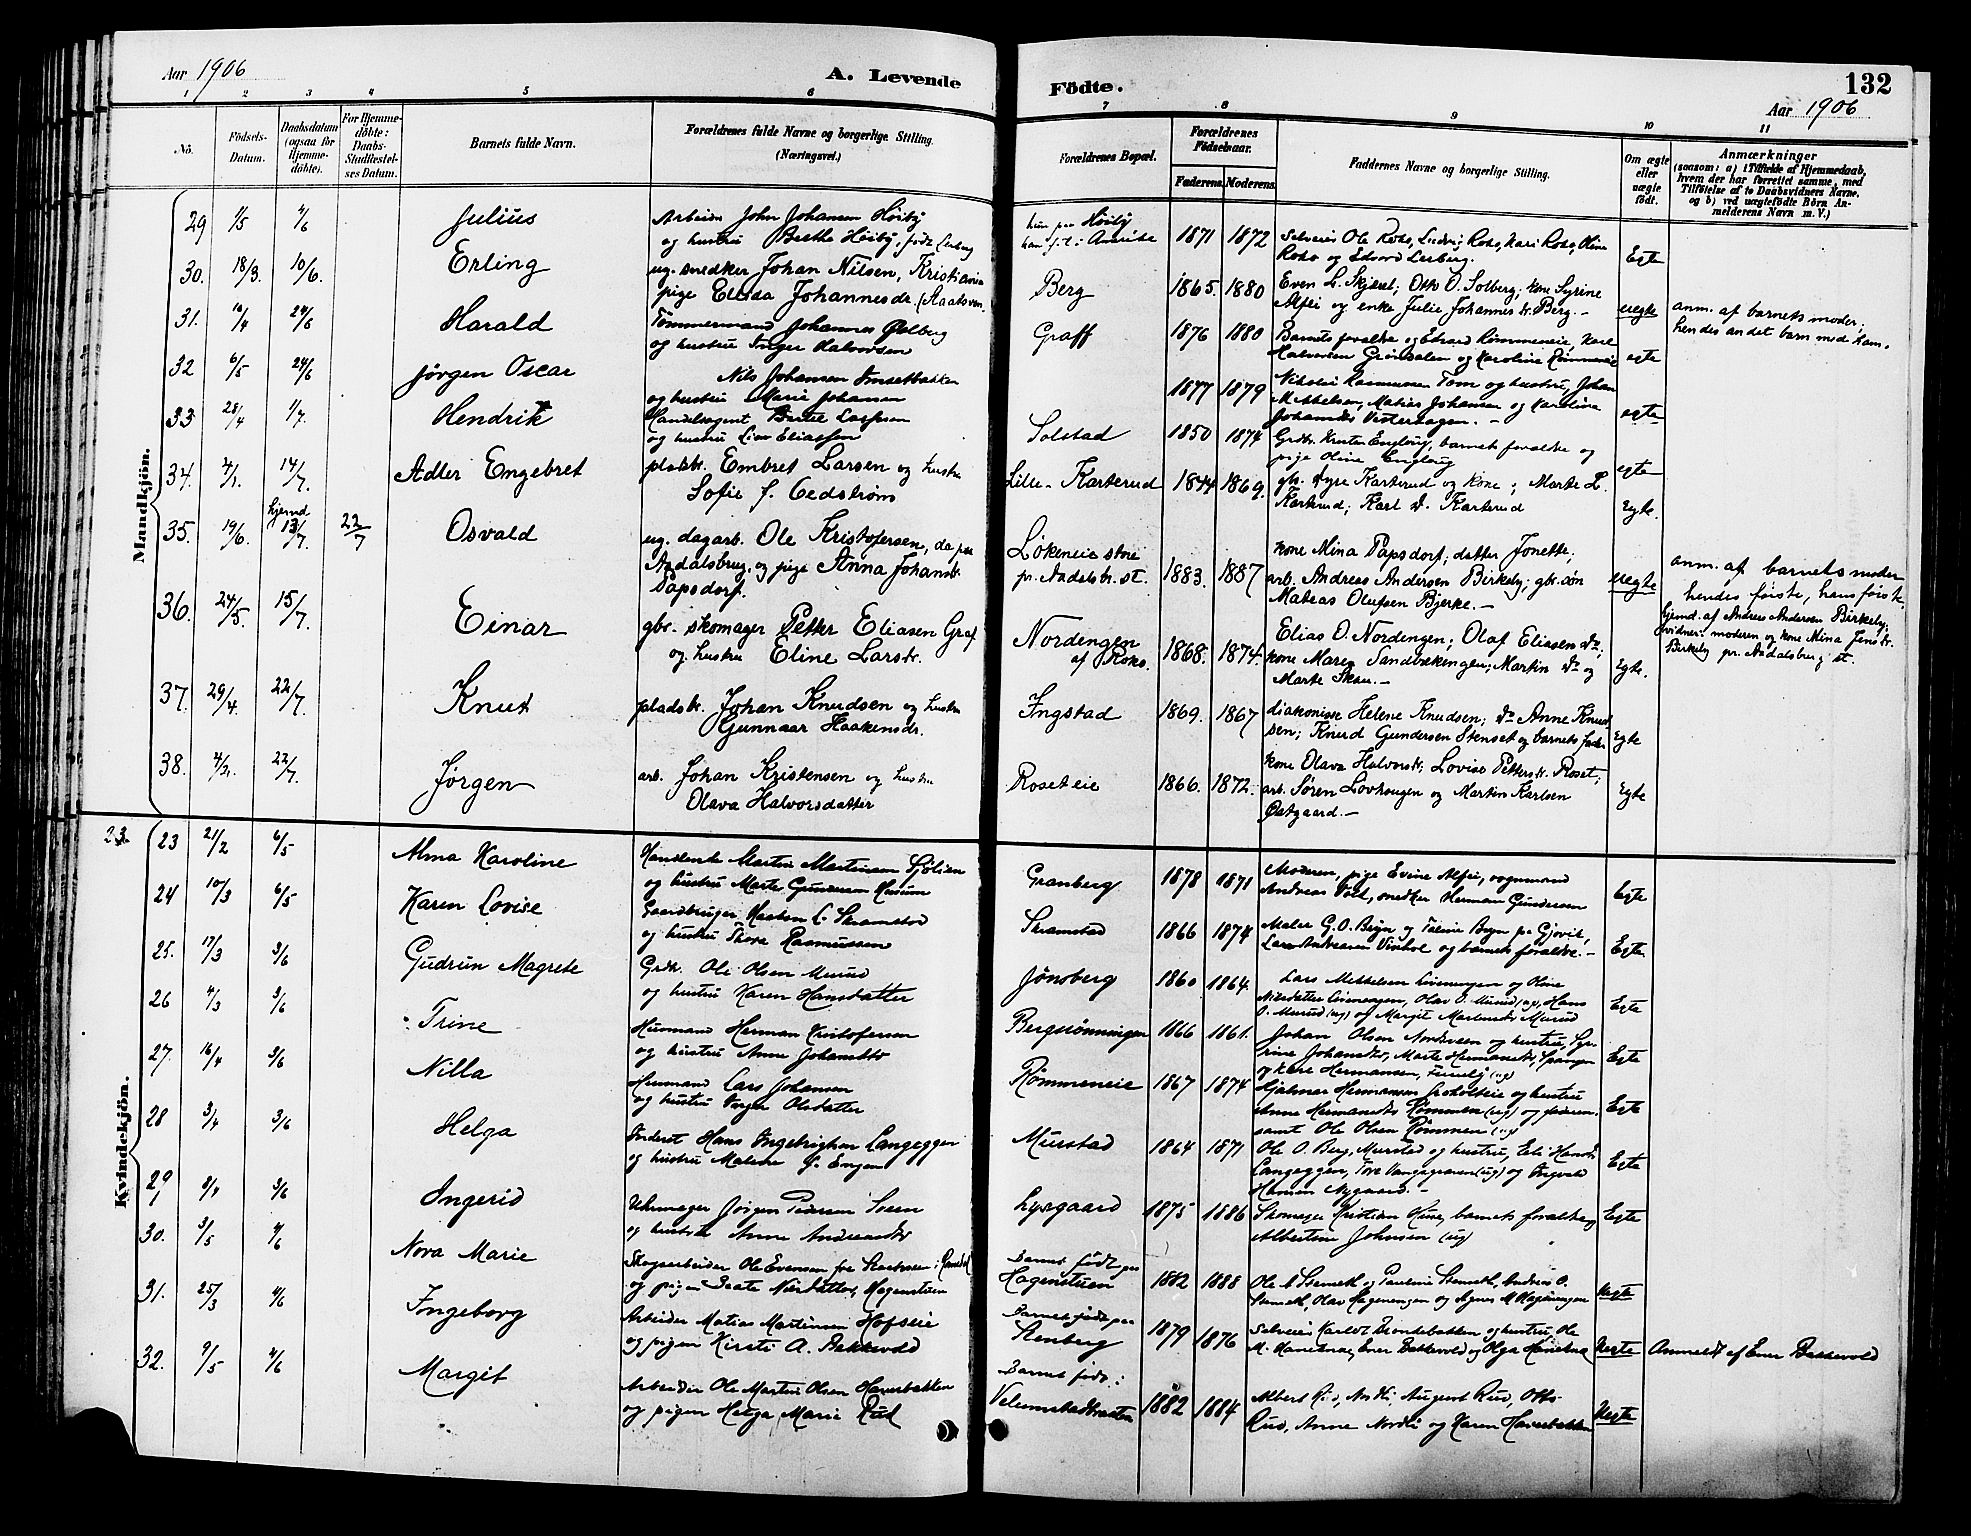 Aar 1906
A. Levende
Födte.
132
Aar 1906
1 2 3 4 5 6 7 8 9 10 11
No.
Födsels-Datum.
Daabsdatum (ogsaa for Hjemmedöbte).
For Hjemmedöbte: Daabs-Stadfæstelses Datum.
Barnets fulde Navn.
Forældrenes fulde Navne og borgerlige Stilling. (Næringsvei.)
Forældrenes Bopæl.
Forældrenes Födselsaar.
Faderens. Moderens.
Faddernes Navne og borgerlige Stilling.
Om ægte eller uægte födt.
Anmærkninger
(saasom: a) i Tilfælde af Hjemmedaab, hvem der har forrettet samme, med Tilföielse af to Daabsvidners Navne, og b) ved uægtefödte Börn Anmelderens Navn m. V.)
Mandkjön.
29 1/5 4/6 Julius
Arbeider John Johansen Höiby
og hustru Berthe Höiby, födt Lerberg
hun paa Höiby
han f.t. i Amerika
1871 1872
Selveier Ole Roko, Ludvig Roko, Kari Roko, Oline
Roko og Edvard Lerberg.
Egte
30. 18/3. 10/6. Erling
ug. snedker Johan Nilsen, Kristiania
pige Elida Johannesdr.
Berg
1865. 1880
Even L. Skjæset; Otto O. Solberg; kone Syrine
Alfei og enke Julie Johannesdr. Berg. -
uegte
anm. af barnets moder;
hendes andet barn med ham.
31. 10/4 24/6 Harald
Tömmermand Johannes Ødberg
og hustru Inger Halvorsen
Graff
1876 1880
Barnets forældre og Edvard Römmeneie, Karl
Halvorsen Grindalen og Karoline Römmeneie
egte
32 6/5 24/6 Jörgen Oscar
Nils Johansen
og hustru Marie Johansen
1877 1879
Nikolai Rasmussen Tom og hustru, Johan
Mikkelsen, Matias Johansen og Karoline
Johannesdr. Vesterhagen. -
egte
33 28/4 1/7. Hendrik
Handelsagent Bertel Larssen
og hustru Lina Eliassen
Solstad
1850 1874
Grdbr. Krister Engloug, barnets forældre og
pige Oline Engloug
egte
34. 4/1. 14/7. Adler Engebret
pladsbr. Embret Larsen og hustru
Sofie f. Cedström
Lille-Karterud
1844 1869.
gbr. Syre Karterud og kone; Marte L.
Karterud; Karl Do. Karterud
Egte.
35. 19/6. hjemd. 13/7. 22/7 Osvald
ug. dagarb. Ole Kristofersen, da paa
Aadalsbrug, og pige Anna Johansdr.
Papsdorf.
Lökeneie store
pr. Aadalsbr. st.
1883. 1887
kone Mina Papsdorf; datter Jonette;
arb. Andreas Andersen Birkeby; gbr. sön
Mateas Olufsen Bjerke. -
uegte
anm. af barnets moder
hendes förste, hans förste.
hjemd. af Andreas Andersen Birkeby;
vidner: moderen og kone Mina Jensdr.
Birkeby pr. Aadalsbrug st.
36. 24/5. 15/7. Einar
gbr. skomager Petter Eliasen Graf
og hustru Eline Larsdr.
Nordengen
af Roko.
1868. 1874.
Elias O. Nordengen; Olaf Eliasen Do.;
kone Maren Sandbækengen; Martin Do. og
Marte Skau. -
Egte.
37. 29/4. 22/7. Knut
pladsbr. Johan Knudsen og hustru
Gunnaar Haakensdr.
Ingstad
1869. 1867
diakonisse Helene Knudsen; Do. Anne Knud
sen; Knud Gundersen Stenset og barnets fader
Egte
38. 4/31. 22/7. Jörgen
arb. Johan Kristensen og hustru
Olava Halvorsdatter
Roset eie
1866. 1872.
kone Olava Halvorsdr; Lovise Pettersdr. Roset;
arb. Sören Lovhaugen og Martin Karlsen
Østgaard. -
Egte
Kvindekjön.
23. 23 21/2 6/5 Alma Karoline
Handlende Martin Martinsen Sjölien
og hustru Marte Gundersen
Granberg
1878 1871
Moderen, pige Evine Alfei, vognmand
Andreas Vold, snedker Herman Gundersen
Egte
24 10/3 6/5 Karen Lovise
Gaardbruger Haaken L. Skramstad
og hustru Thora Rasmussen
Skramstad
1866 1874
Maler G. O. Bryn og Faline Bryn pr Gjövik,
Lars Andreasen Visthol og barnets forældre. -
Egte
25. 17/3 3/6 Gudrun Magrete
Grdbr. Ole Olsen Murud
og hustru Karen Hansdatter
Jönsberg
1860 1864.
Lars Mikkelsen Lövenengen og Oline
Nilsdatter Lövenengen, Olav O. Murud (ug), Hans
O. Murud (ug) og Margit Martinsdr. Murud
Egte
26 4/3 3/6 Trine
Husmand Herman Kristofersen
og hustru Anne Johansdtr
Bergsönningen
1866 1861.
Johan Olsen Nordveen og hustru, Sy-
rine Johansdtr, Marte Hermansdtr, Spangen
og Kare Hermansen, (ug)
Egte
27. 16/4 3/6 Nilla
Husmand Lars Johansen
og hustru Inger Olsdatter
Römmeneie
1867 1874
Hjalmar Hermansen og hustru
Anne Hermansdtr Römmen (ug) og faderen
samt Ole Olsen Römmen (ug)
Egte
28 3/4 3/6 Helga
Inderst Hans Ingebrigtsen Langeggen
og hustru Malene f. Engen
Murstad
1864 1871
Ole O. Berg, Murstad og hustru, Eli Hansdr.
Langeggen, Tove Vangsgraven (ug) og Ingvald
Hansen Nygaard. -
Egte
29 8/4 3/6 Ingerid
Uhrmager Jörgen Pedersen Loen
og hustru Anne Andreasdtr
Lysgaard
1875 1886
Skomager Kristian Huse, barnets forældre og
Albertine Johnsen (ug)
Egte
30. 3/5 4/6 Nora Marie
Skogsarbeider Ole Evensen fra i Romedal
og pigen Beate Nilsdatter, Hagenstuen
Barnet födt paa
Hagenstuen
1882 1888
Ole L. Stenseth og Pauline Stenseth, Andreas O.
Stenseth, Olav Hagenengen og Agnes M. Hagenengen
Uegte
31. 25/3 4/6 Ingeborg
Arbeider Matias Martinsen Hofseie
og pigen Kirsti A. Bakkevold
Barnet födt paa
Stenberg
1879 1876
Selveier Karl Brændebakken og hustru, Ole
M. Hanestua, Ener Bakkevold og Olga Hanestua
Uegte
Anmeldt af Ener Bakkevold
32. 9/5 4/6 Margit
Arbeider Ole Martin Olsen Haverbakken
og pigen Helga Marie Rud
Barnet födt i
Velumstadbraaten
1882 1884
Albert Rud, August Rud, Otto
Rud, Anne Nordli og Karen Haverbakken
Uegte